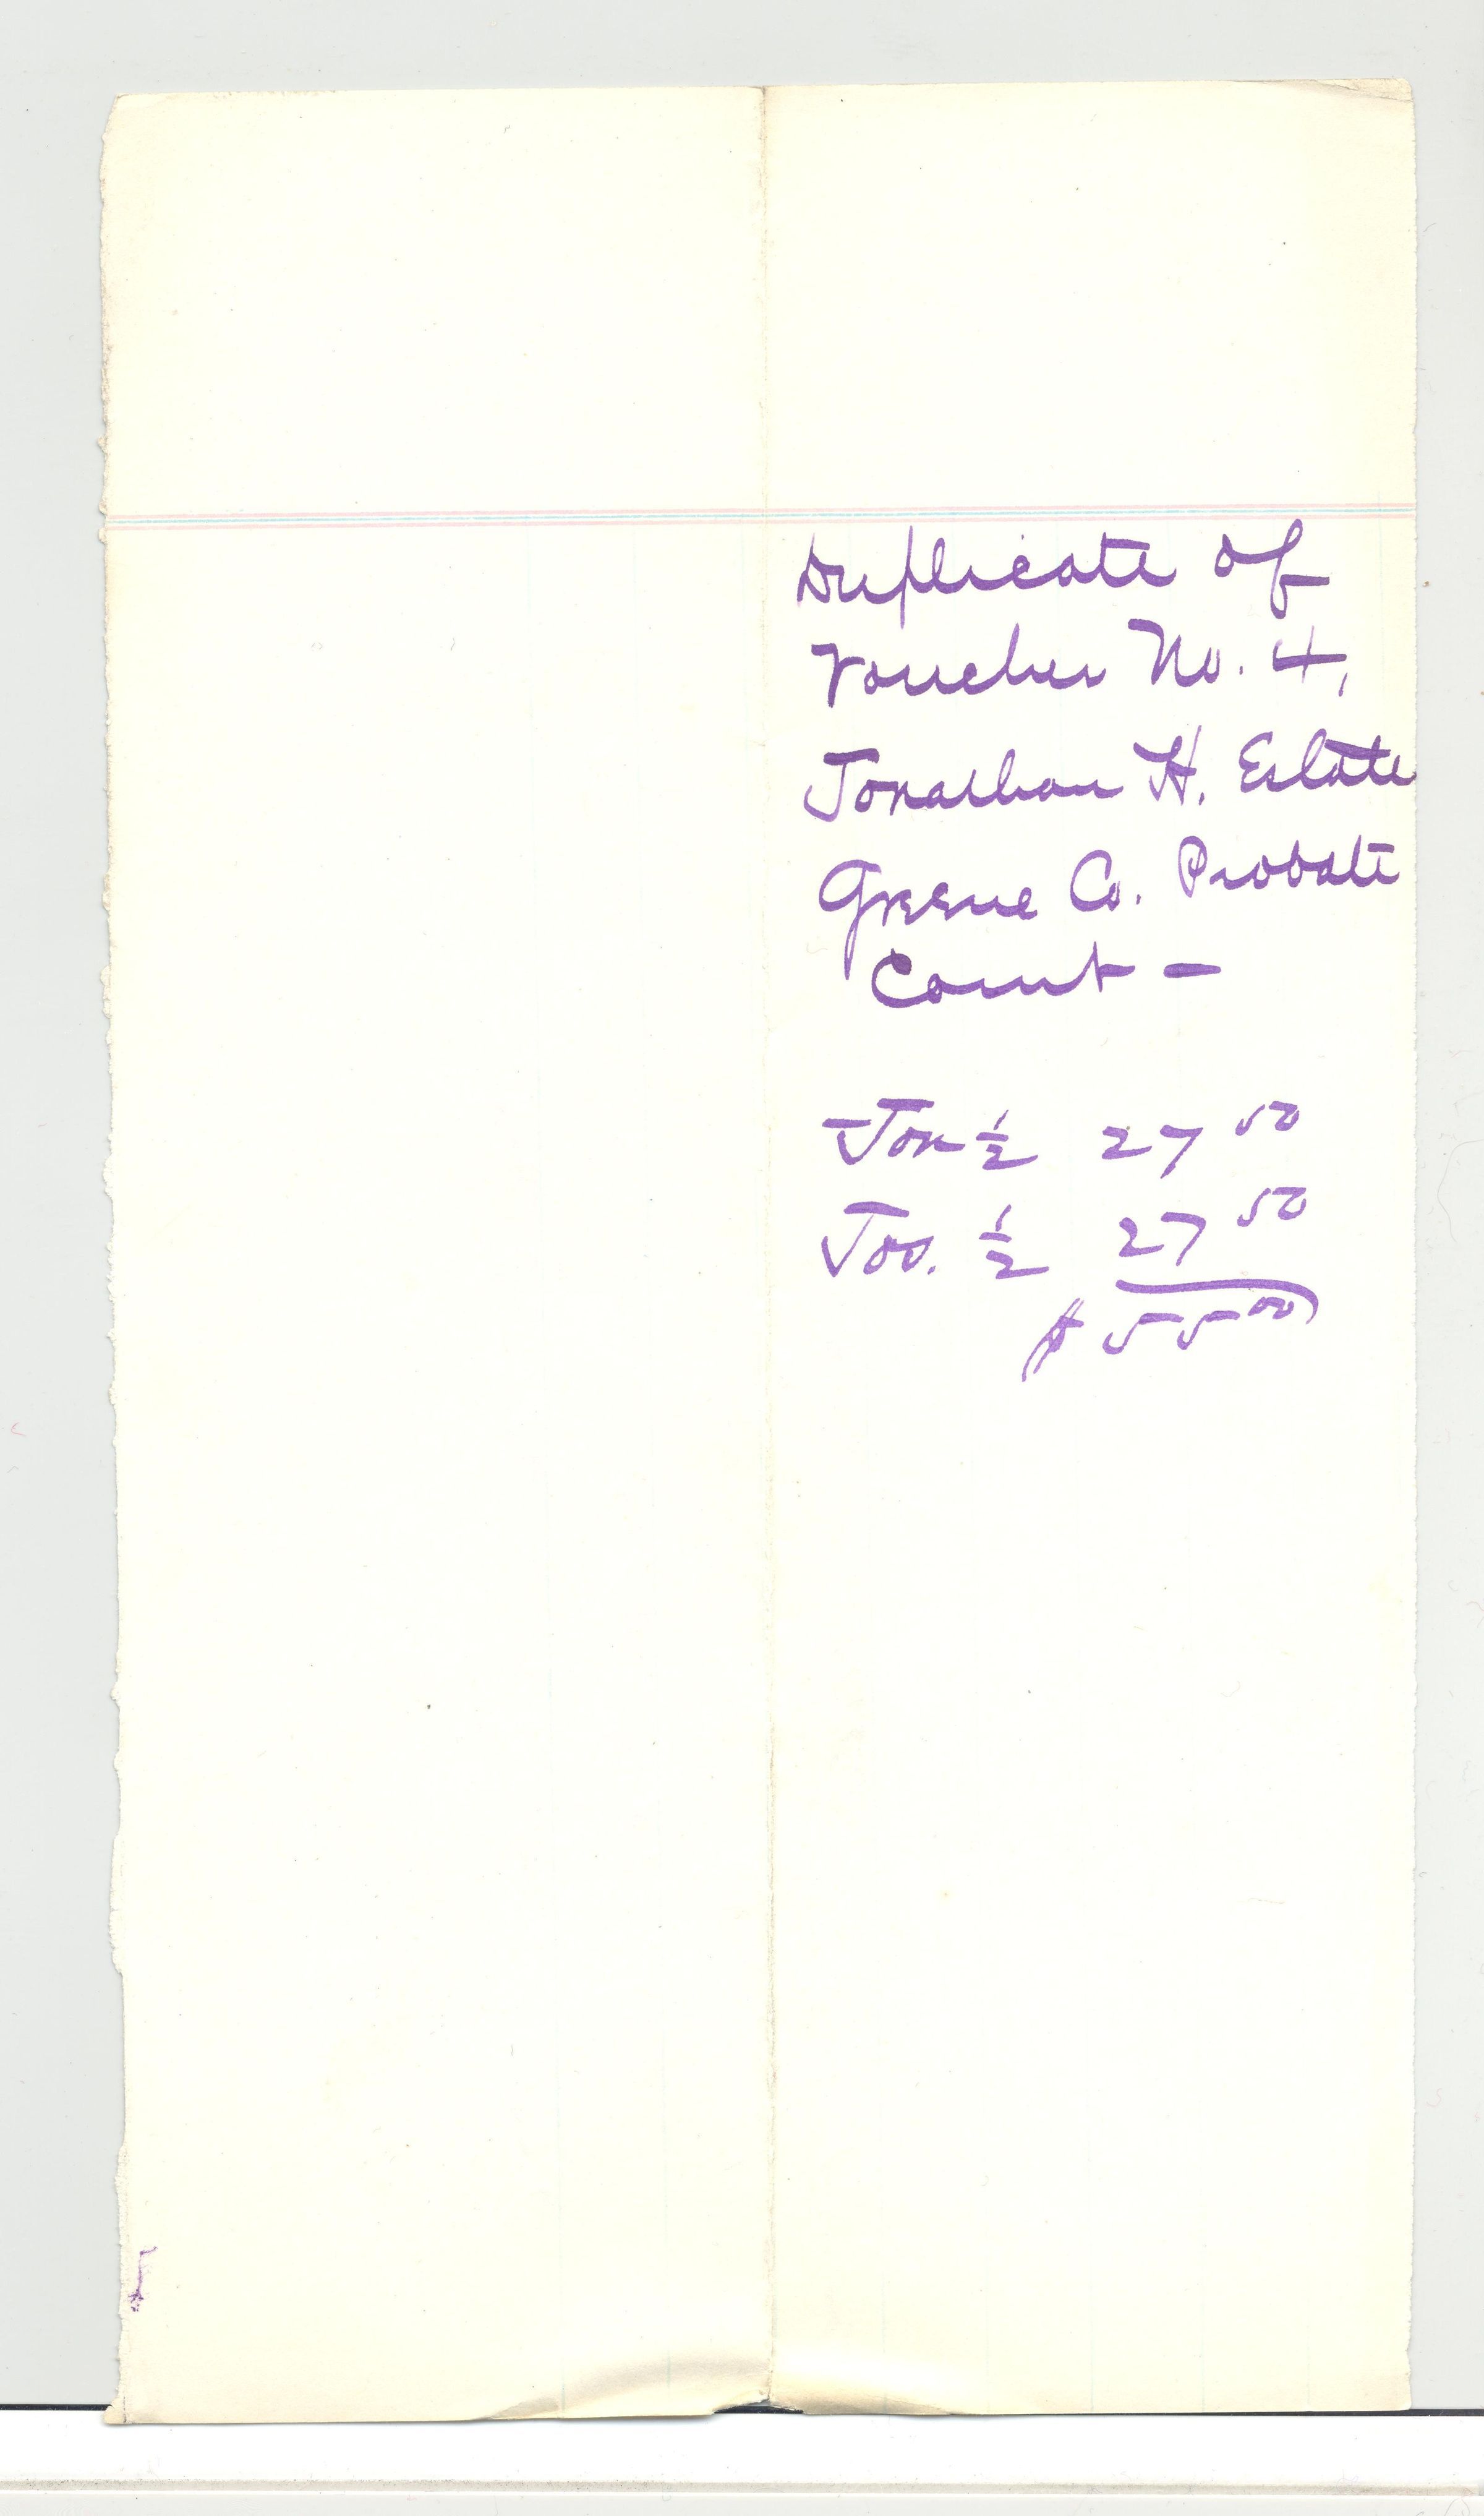 Duplicate of
Voucher No. 4,
Jonathan H. Estate
Greene Co. Probate
Court —
Jon ½ 27 50
Jos. ½ 27 50
$ 55 00